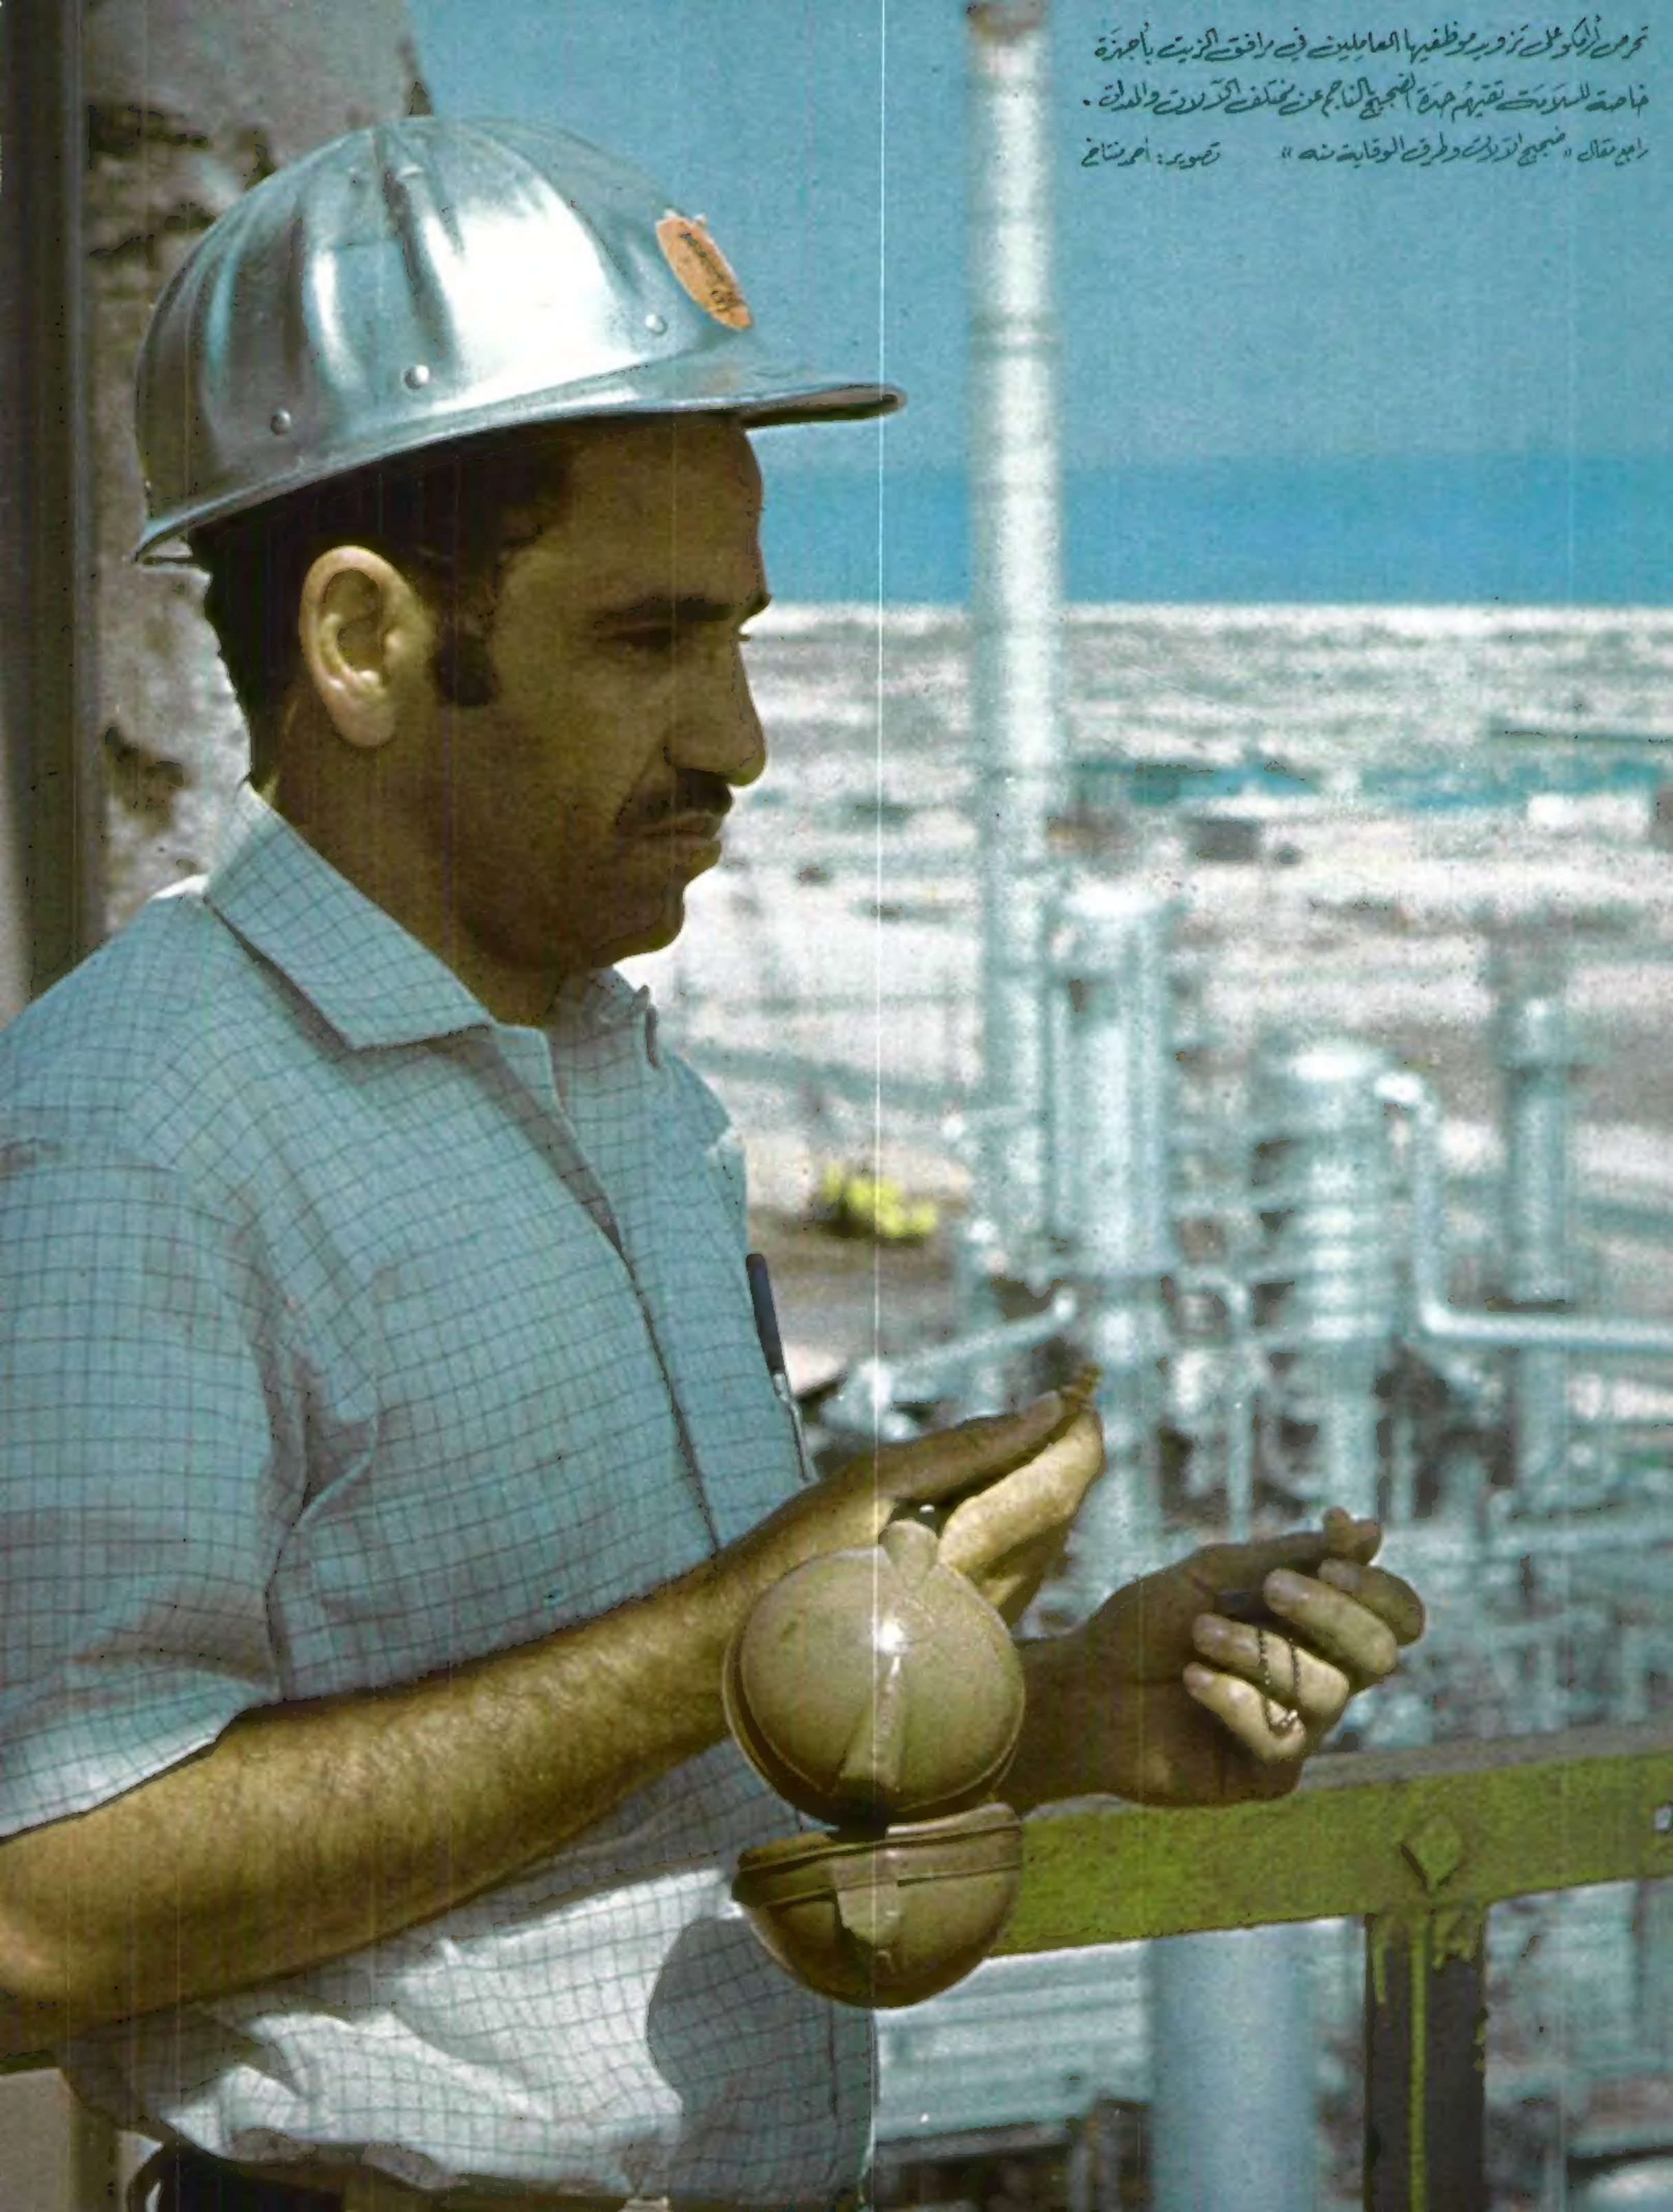 تحرص أرامكو على تزويد موظفيها العاملين في مرافق الزيت بأجهزة
خاصة للسلامة تقيهم حدة الضجيج الناجم عن مختلف الآلات والمعدات .
راجع مقال « ضجيج الآلات وطرق الوقاية منه » تصوير : أحمد منتاخ